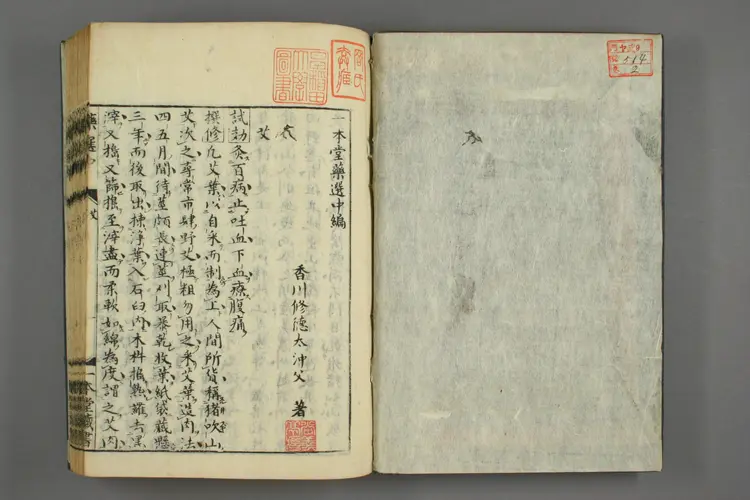 一本堂藥選中編
香川修德太冲父 著
艾
試効灸百病止吐血下血療腹痛
撰修凡艾葉以自采而制為工人間所貨稱猪吹山
艾次之尋常市肆野艾極粗勿用之采艾葉造肉法
四五月間待莖頗長連莖刈取暴乾收葉紙袋藏懸
三年而後取出揀淨葉入石臼内木杵搗熟羅去黑
滓又搗又篩搗至滓盡而柔軟如綿為度謂之艾肉
藥選
艾
一本堂藏書
514
2